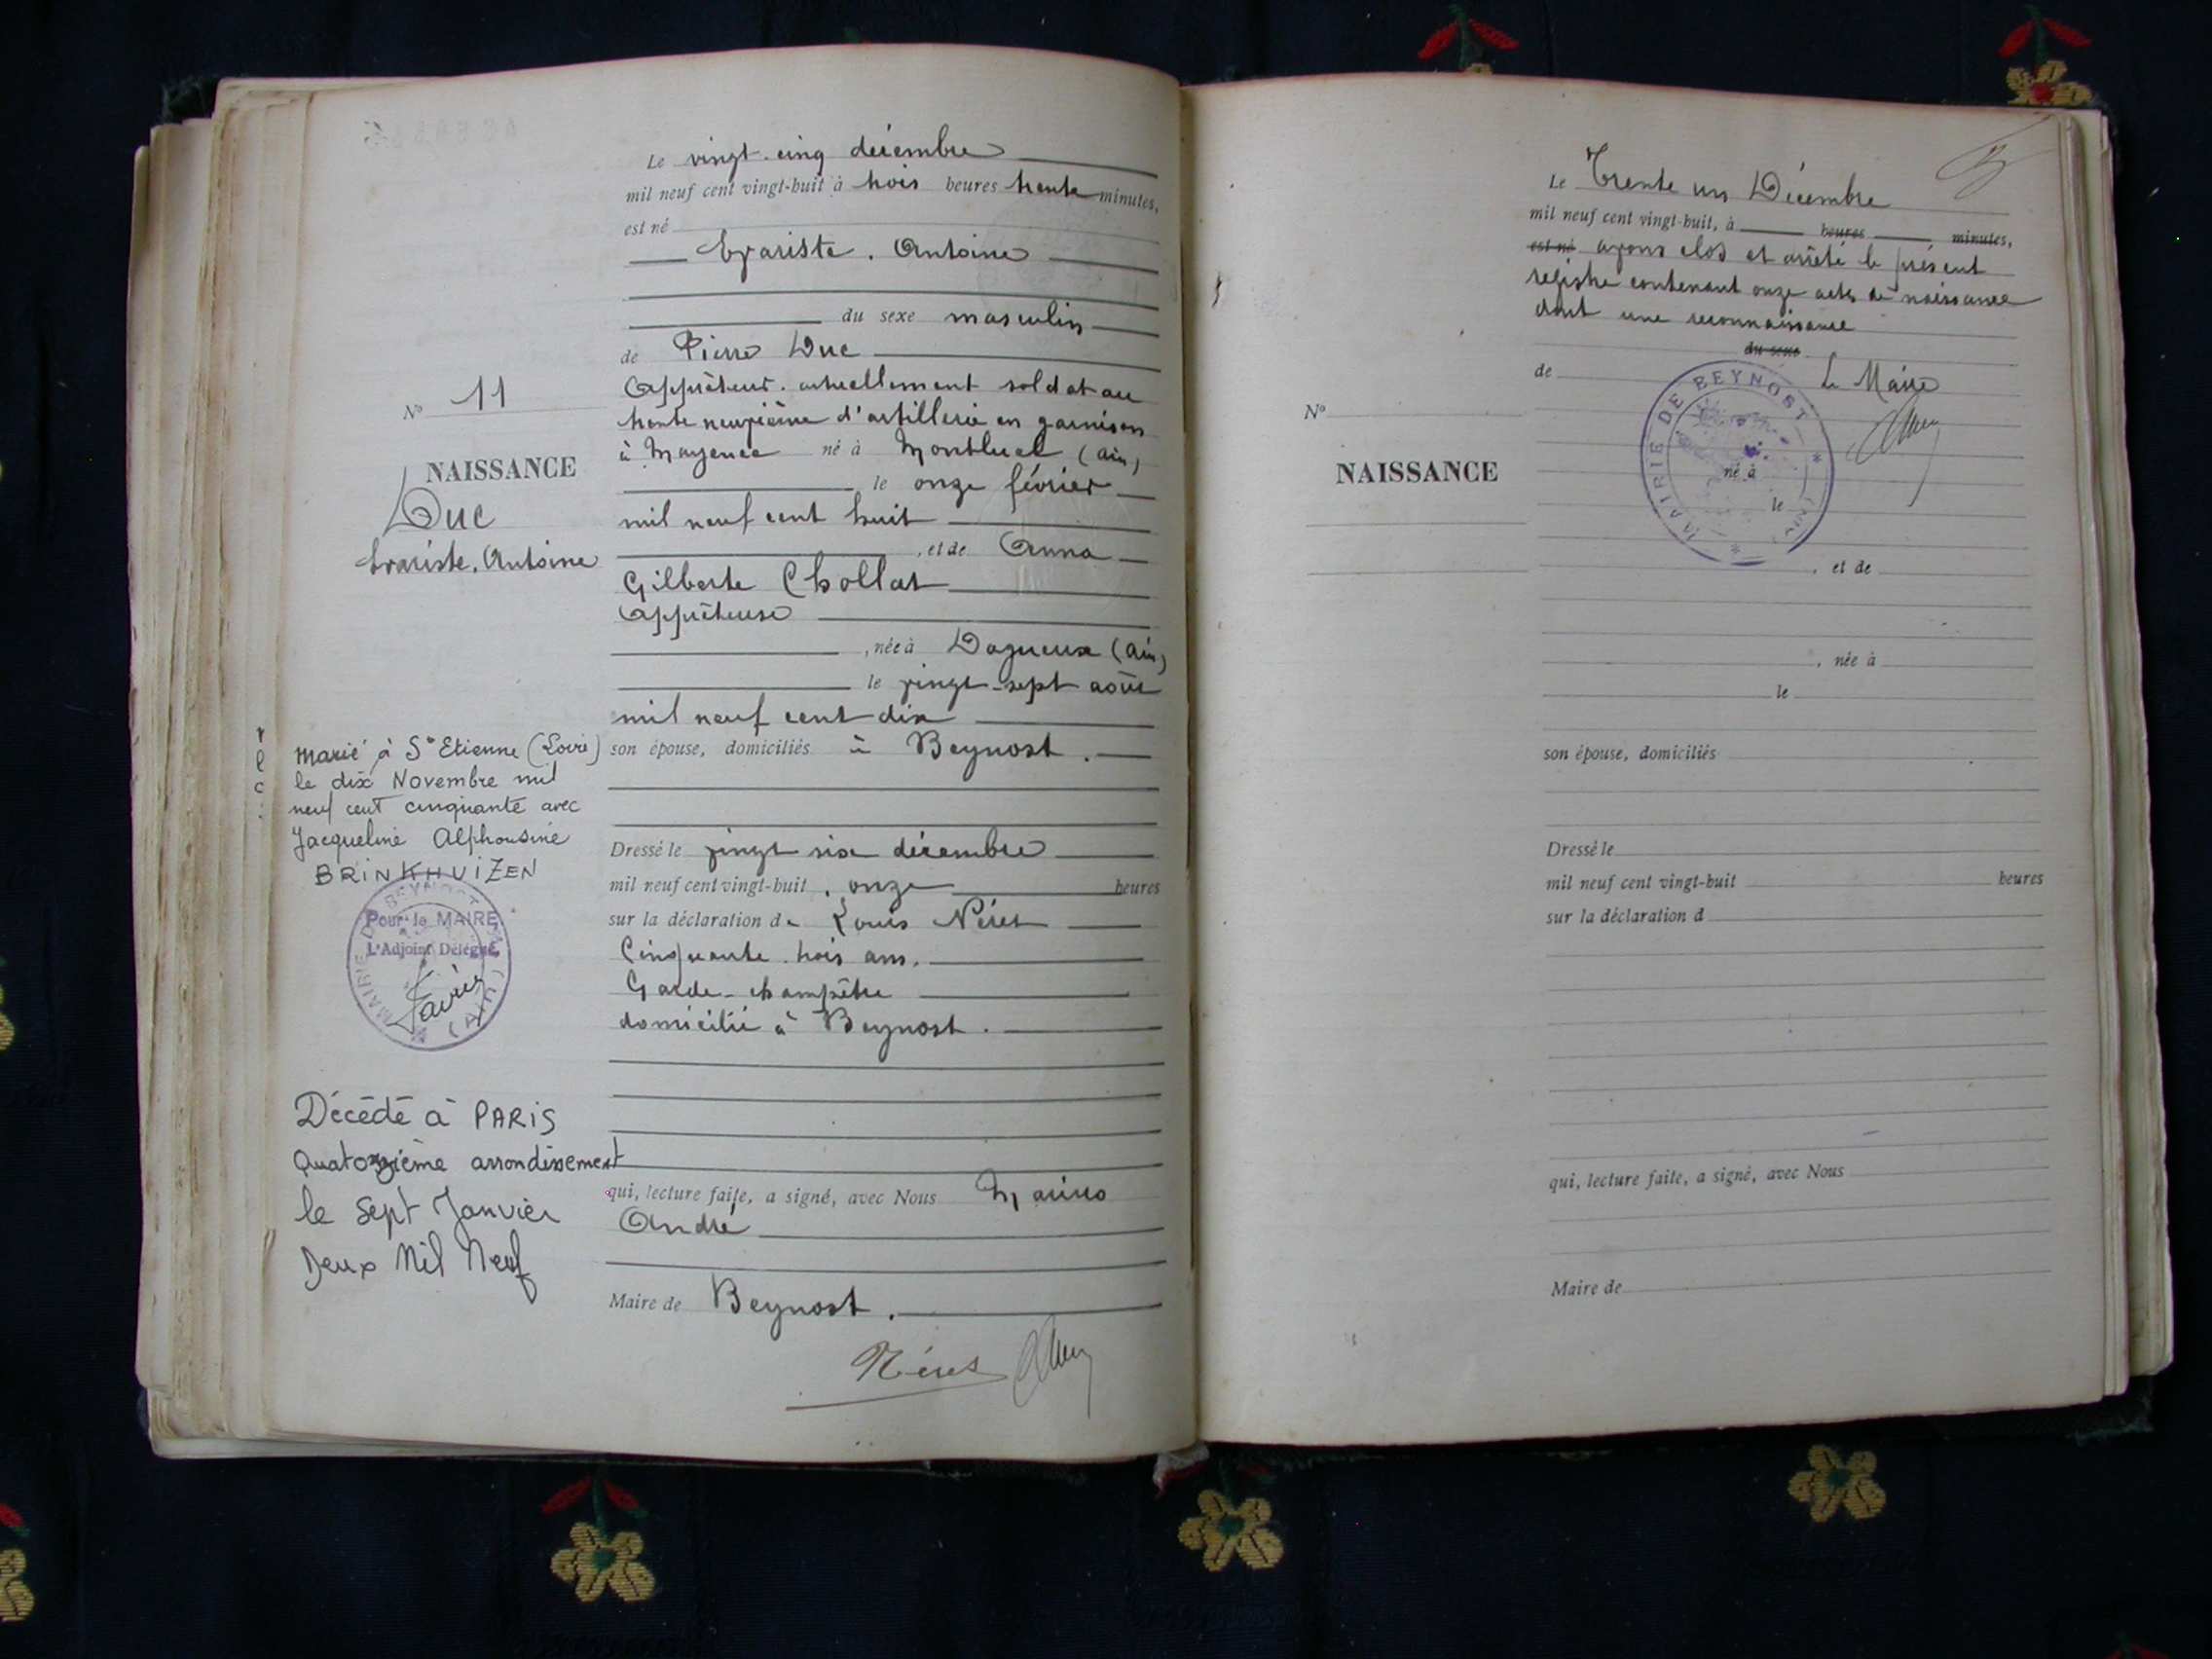 Le vingt-cinq décembre
mil neuf cent vingt-huit à trois heures trente minutes,
est né
Evariste. Antoine
du sexe masculin
de Pierre Duc
Apprêteur. actuellement soldat au
trente neuvième d'artillerie en garnison
à Mayence né à Montluel (Ain)
le onze février
mil neuf cent huit
, et de Anna
Gilberte Chollat
Apprêteuse
, née à Dagneux (Ain)
le vingt-sept août
mil neuf cent dix
son épouse, domiciliés à Beynost.
Dressé le vingt six décembre
mil neuf cent vingt-huit, onze heures
sur la déclaration de Louis Néret
Cinquante trois ans.
Garde-champêtre
domicilié à Beynost.
qui, lecture faite, a signé, avec Nous
André
Maire de Beynost.
Néret
N° 11
NAISSANCE
Duc
Evariste. Antoine
Marié à St Etienne (Loire)
le dix Novembre mil
neuf cent cinquante avec
Jacqueline Alphonsine
BRINKHUIZEN
MAIRIE DE BEYNOST (AIN)
Pour le MAIRE
L'Adjoint Délégué
Décédé à PARIS
Quatorzième arrondissement
le Sept Janvier
Deux Mil Neuf
Le Trente un Décembre
mil neuf cent vingt-huit, à heures minutes,
est né avons clos et arrêté le présent
registre contenant onze actes de naissance
dont une reconnaissance
du sexe
de Le Maire
MAIRIE DE BEYNOST
N°
NAISSANCE
né à
le
, et de
, née à
le
son épouse, domiciliés
Dressé le
mil neuf cent vingt-huit heures
sur la déclaration d
qui, lecture faite, a signé, avec Nous
Maire de